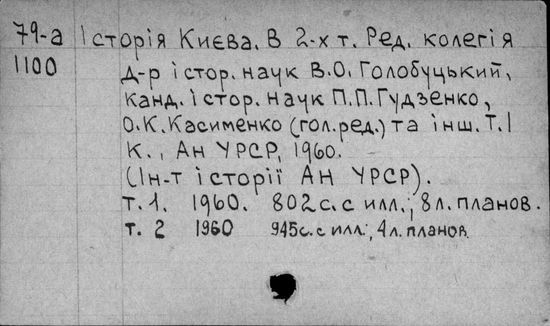 79-а Історія Києва. В 2-х т. Ред. колегія
1100 д-р істор. наук В.О. Голобуцький,
канд. істор. наук П.П. Гудзенко,
О.К. Касименко (гол. ред.) та інш. Т.І
К., Ан УРСР, 1960.
(Ін-т історії АН УРСР).
т. 1. 1960. 802 с. с илл.; 8 л. планов.
т. 2 1960 945 с. с илл.; 4 л. планов